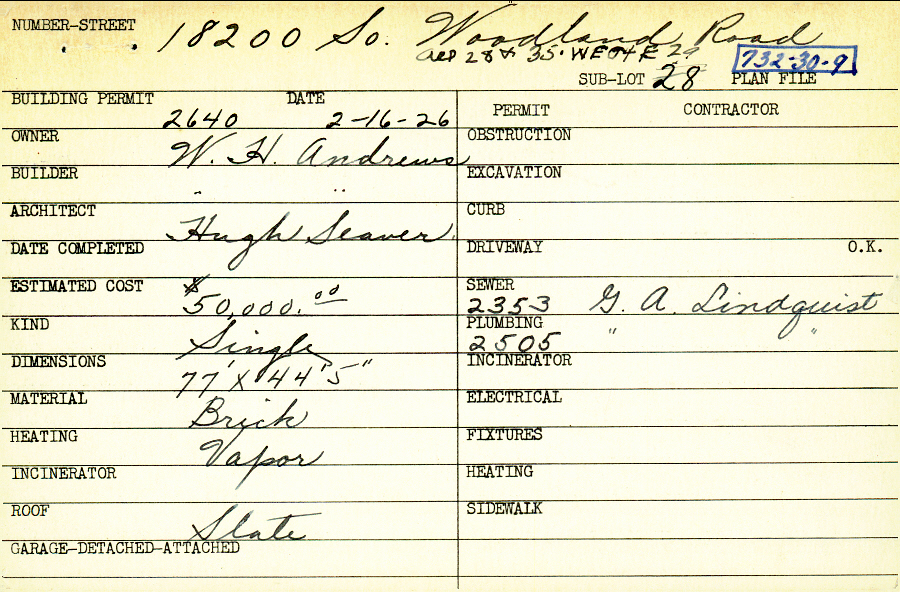 NUMBER-STREET 18200 So. Woodland Road
all 28 & 35' WE OF E 29 732-30-9
SUB-LOT 28 PLAN FILE
BUILDING PERMIT 2640 DATE 2-16-26
OWNER W. H. Andrews
BUILDER " "
ARCHITECT Hugh Seaver
DATE COMPLETED
ESTIMATED COST $50,000.00
KIND Single
DIMENSIONS 77' X 44' 5"
MATERIAL Brick
HEATING Vapor
INCINERATOR
ROOF Slate
GARAGE-DETACHED-ATTACHED
PERMIT CONTRACTOR
OBSTRUCTION
EXCAVATION
CURB
DRIVEWAY O.K.
SEWER 2353 G. A. Lindquist
PLUMBING 2505 " "
INCINERATOR
ELECTRICAL
FIXTURES
HEATING
SIDEWALK